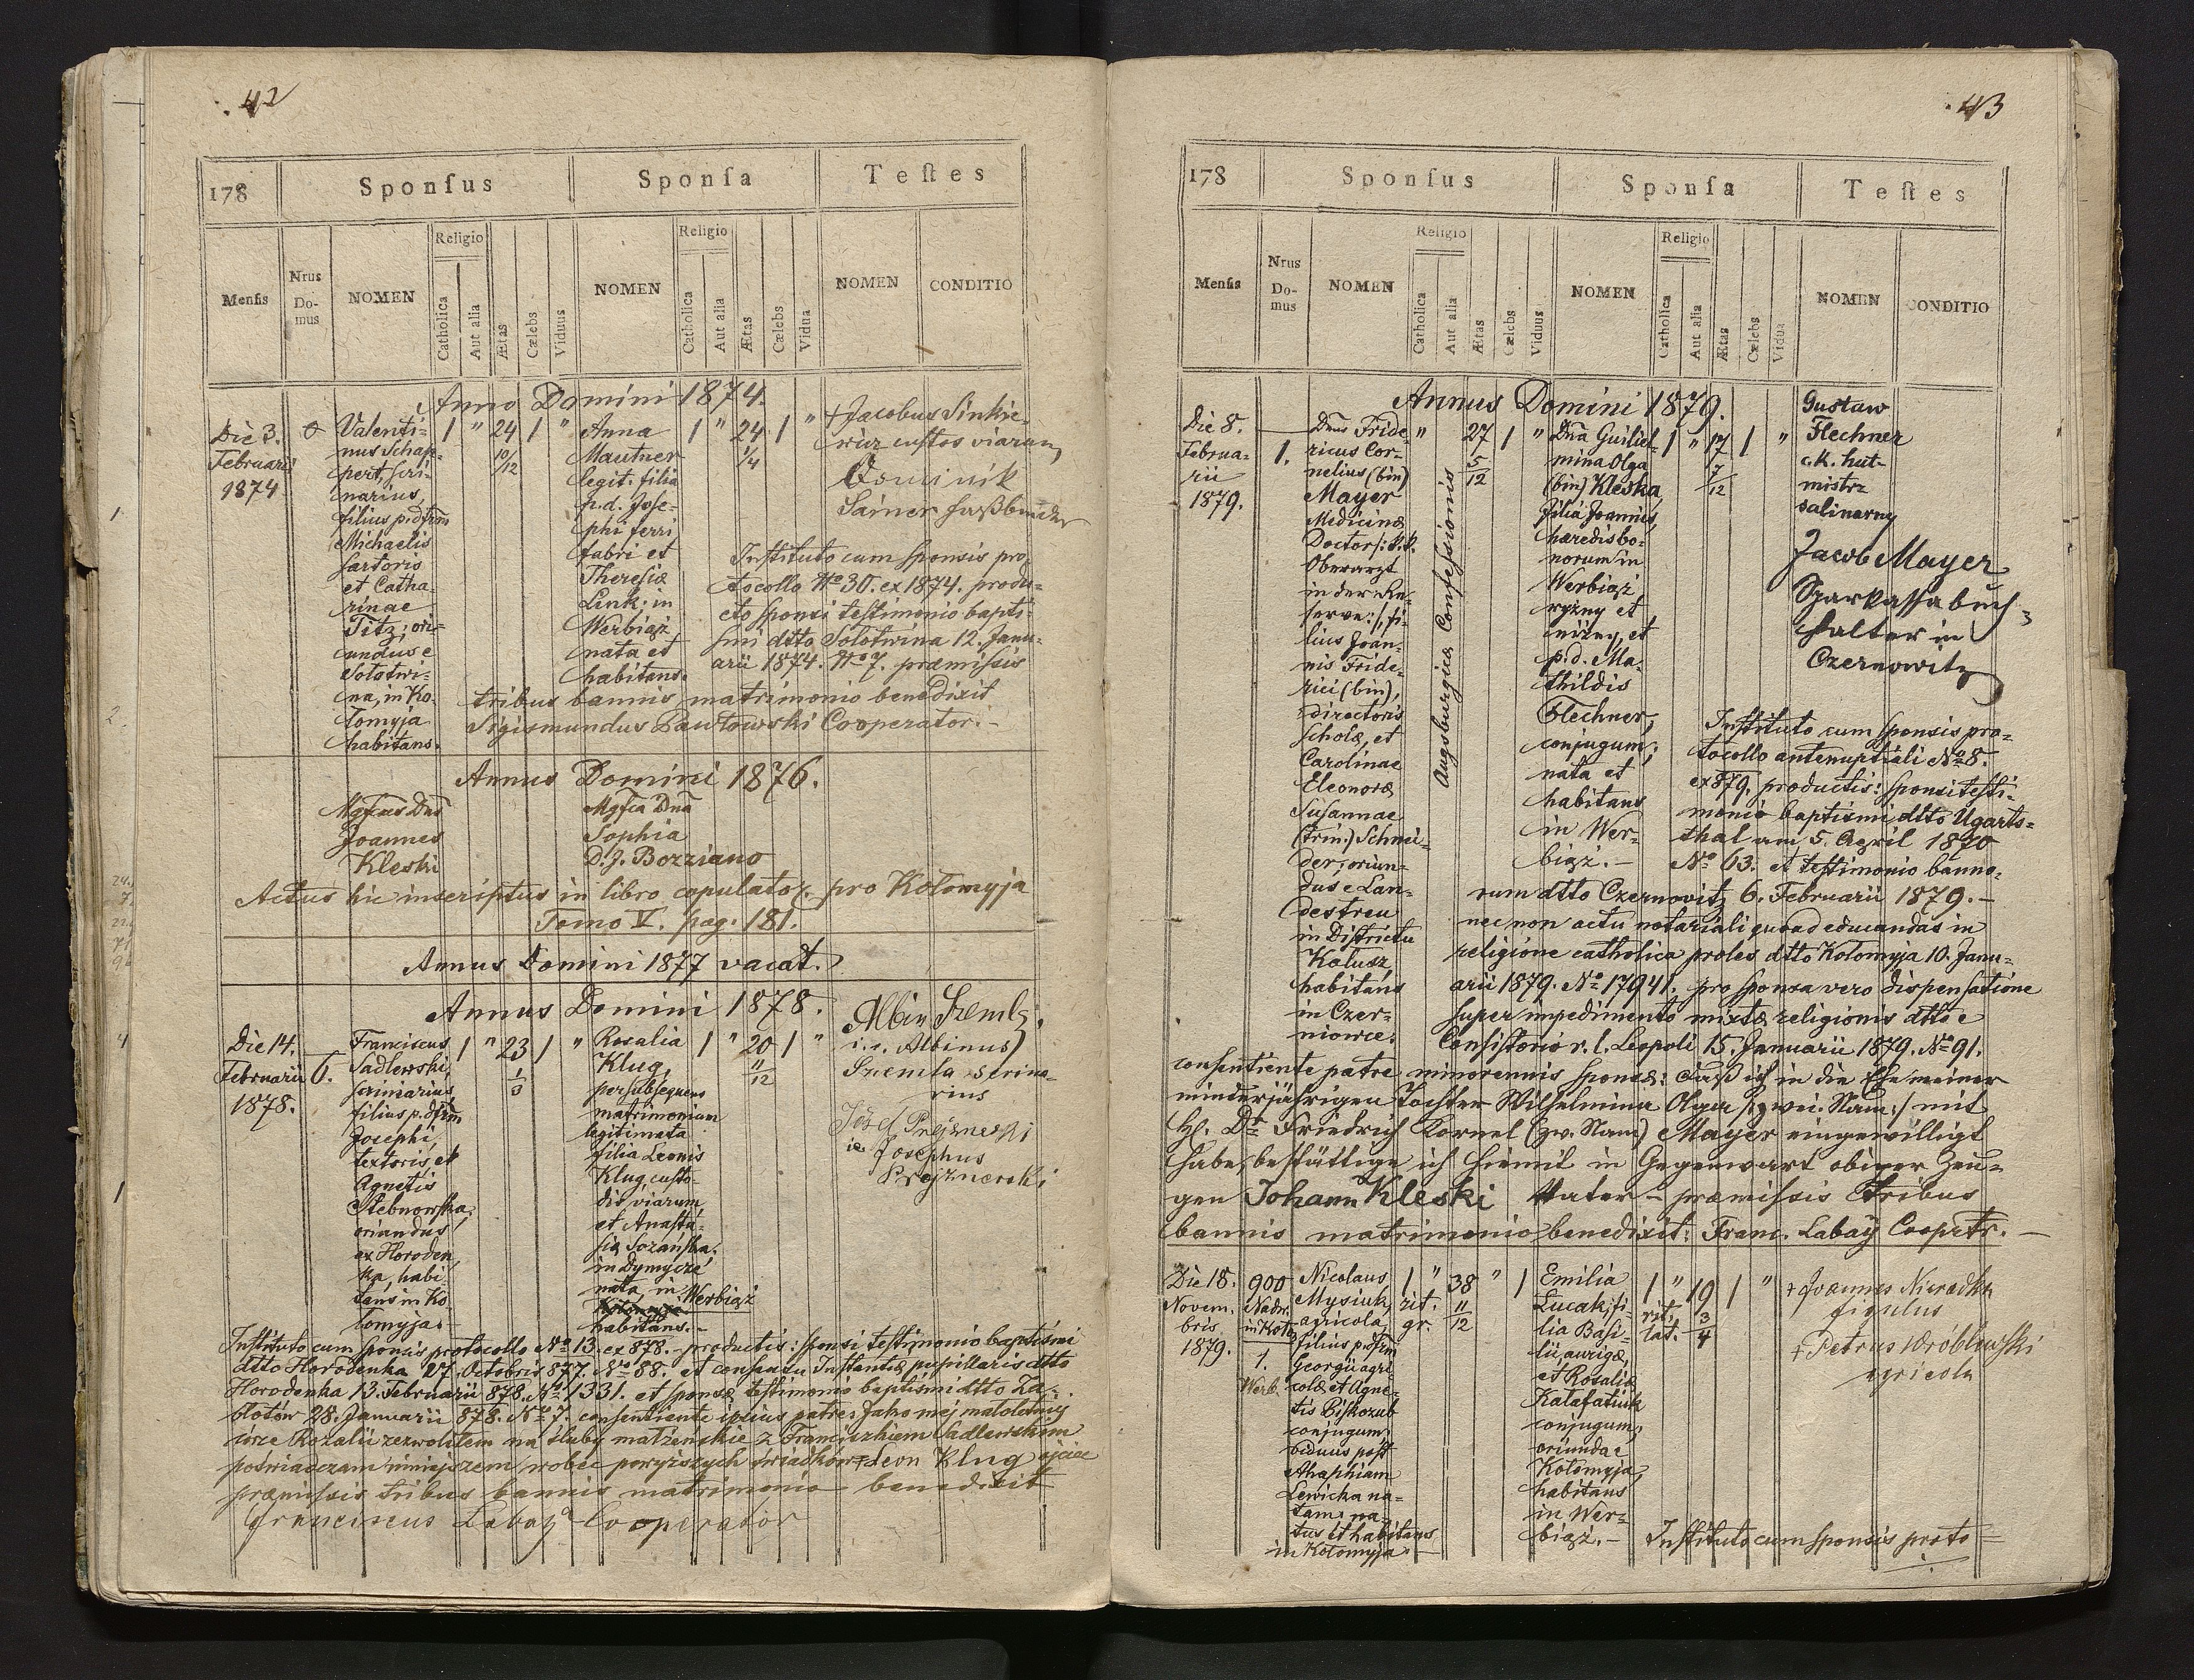 42
178
Sponsus
Sponsa
Testes
Mensis
Nrus Do-mus
NOMEN
Religio
Catholica
Aut alia
Ætas
Cælebs
Viduus
NOMEN
Religio
Catholica
Aut alia
Ætas
Cælebs
Vidua
NOMEN
CONDITIO
Anno Domini 1874.
Die 3.
Februarii
1874
Valenti=
nus Schap=
pert, scri-
narius,
filius p.dfm
Michaelis
sartoris
et Catha-
rinae
Titz; ori=
undus e
Solotwi=
na, in Ko-
lomyja
habitans.
1 " 24 1 "
10/12
Anna
Mautner
legit. filia
p.d. Jose=
phi ferri
fabri et
Theresiæ
Link; in
Werbiąż
nata et
habitans.
1 " 24 1 "
1/4
+ Jacobus Sinkie-
wicz custos viarum
Dominik
Sainer Faßbinder
Instituto cum sponsis pro
tocollo No 30. ex 1874. produ=
cto sponsi testimonio bapti=
smi dtto Solotwina 12. Janu=
arii 1874. No 7. præmissis
tribus bannis matrimonio benedixit
Sigismundus Pawłowski Cooperator.-
Annus Domini 1876.
Mgfcus Dnus
Joannes
Kleski
Mgfca Dna
Sophia
D.J. Bozziano
Actus hic inscriptus in libro copulator. pro Kołomyja
Tomo V. pag. 181.
Annus Domini 1877 vacat.
Annus Domini 1878.
Die 14.
Februarii
1878.
6.
Franciscus
Sadlewski,
scriniarius,
filius p.dfm
Josephi,
textoris, et
Agnetis
Stebnowska,
oriundus
ex Horoden
ka, habi
tans in Ko
lomyja.-
1 " 23 1 "
1/3
Rosalia
Klug,
per subsequens
matrimonium
legitimata
filia Leonis
Klug, custo-
dis viarum,
et Anasta=
siæ Sozańska,
in Dymycze
nata, in Werbiąż
habitans.-
1 " 20 1 "
11/12
Albin Szemla.
i.e. Albinus)
Szemla scrinia-
rius
ie. Josephus
Instituto cum sponsis protocollo No 13. ex 878.- productis: sponsi testimonio baptismi
dtto Horodenka 27. Octobris 877. No 88. et consensu Instantiæ pupillaris dtto
Horodenka 13. Februarii 878. No 1331. et sponsæ testimonio baptismi dtto Za=
błotów 28. Januarii 878. No 7. consentiente ipsius patre: Jako mej małoletniej
córce Rozalii zezwoliłem na śluby małżeńskie z Franciszkiem Sadlewskim
poświadczam niniejszem wobec powyższych świadków: Leon Klug ojciec
præmissis tribus bannis matrimonio benedixit
Franciscus Labaÿ Cooperator
43
178
Sponsus
Sponsa
Testes
Mensis
Nrus Do-mus
NOMEN
Religio
Catholica
Aut alia
Ætas
Cælebs
Viduus
NOMEN
Religio
Catholica
Aut alia
Ætas
Cælebs
Vidua
NOMEN
CONDITIO
Annus Domini 1879.
Die 8.
Februa=
rii
1879.
1.
Dnus Fride=
ricus Cor=
nelius (bin)
Mayer
Medicinæ
Doctor /: k.k.
Oberarzt
in der Re=
serve :/, fi=
lius Joan=
nis Fride=
rici (bin),
directoris
scholæ, et
Carolinae
Eleonoræ
Susannae
(trin.) Schnei=
der; oriun=
dus e Lan=
destreu
in Districtu
Kałusz,
habitans
in Czer=
niowce.
Augsburgicæ Confessionis
" 27 1 "
5/12
Dna Guiliel=
mina Olga
(bin) Kleska,
filia Joannis,
hæredis bo=
norum in
Werbiąż
wyżny et
niżny, et
p.d. Ma=
thildis
Flechner,
conjugum;
nata et
habitans
in Wer=
biąż.-
1 " 17 1 "
7/12
Gustaw
Flechner
c.k. hut-
mistrz
salinarny
Jacob Mayer
Sparkassabuch=
halter in
Czernowitz
Instituto cum sponsis pro=
tocollo antenuptiali No 8.
ex 879. productis: sponsi testi=
monio baptismi dtto Ugarts=
thal am 5. April 1870
No 63. et testimonio banno=
rum dtto Czernovitz 6. Februarii 1879.-
nec non actu notariali quoad educandas in
religione catholica proles dtto Kolomyja 10. Janu=
arii 1879. No 17941. pro sponsa vero dispensatione
super impedimento mixtæ religionis dtto e
Consistorio r.l. Leopoli 15. Januarii 1879. No 91.
consentiente patre minorennis sponsæ: Daß ich in die Ehe meiner
minderjährigen Tochter Wilhelmina Olga /: zwei Nam :/ mit
H. Dr Friedrich Kornel (zw. Nam) Mayer eingewilligt
habe, bestättige ich hiemit in Gegenwart obiger Zeu=
gen Johann Kleski Vater - præmissis tribus
bannis matrimonio benedixit: Franc. Labaÿ Coopetr.-
Die 18.
Novem.
bris
1879.
900
Nadw.
in Koł.
1.
Werb.
Nicolaus
Mysiuk,
agricola,
filius p.dfm
Georgii agri
colæ et Agne=
tis Biskozub
conjugum,
viduus post
Ahaphiam
Lewicka na=
tam; na
tus et habitans
in Kołomyja.-
1 " 38 " 1
rit. gr.
11/12
Emilia
Łucak, fi-
lia Basi=
lii aurigæ,
et Rosaliæ
Kałafatiuk
conjugum,
oriunda e
Kołomyja,
habitans
in Wer=
biąż.-
1 " 19 1 "
rit. lat.
3/4
+ Joannes Nieradka
figulus
+ Petrus Wroblewski
agricola
Instituto cum sponsis proto=